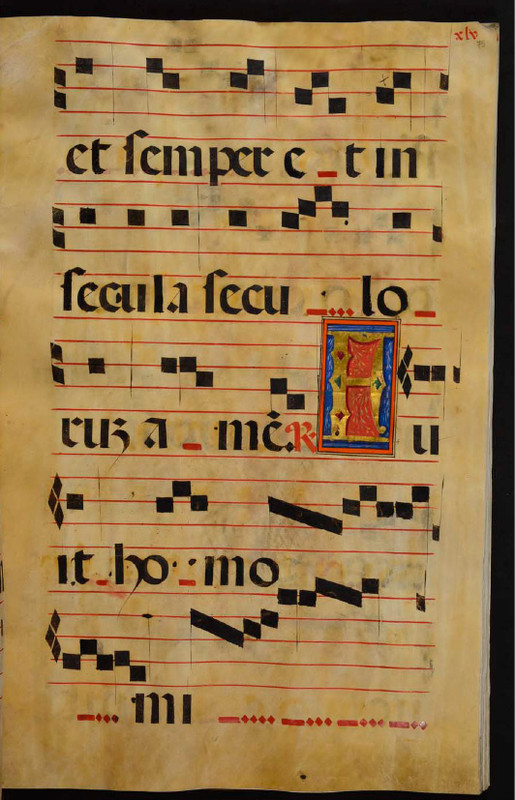 xlv
et semper e t in
secula secu lo
ruꝫ a mē. ℟ F u
it ho mo
mi